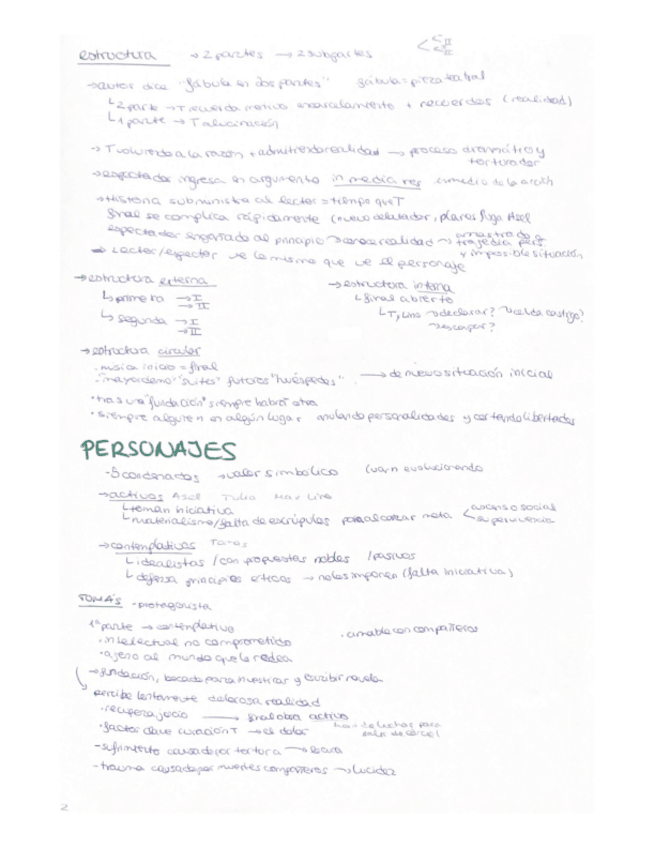 estructura → 2 partes → 2 subpartes
→ autor dice "fábula en dos partes" fábula = pieza teatral
↳ 2 parte → T recuerda motivo encarcelamiento + recuerdos (realidad)
↳ 1 parte → T alucinación
→ T volviendo a la razón + admitiendo realidad → proceso dramático y torturador
→ espectador ingresa en argumento in media res en medio de la acción
→ Historia subministra al lector = tiempo que T
final se complica rápidamente (nuevo celutador, planes fuga Asel
espectador engañado al principio → conoce realidad → arrastrado a tragedia pers. y imposible situación
→ Lector/espector ve lo mismo que ve el personaje
→ estructura externa
↳ primera → I → II
↳ segunda → I → II
→ estructura interna
↳ final abierto
↳ T, Lino → declarar? → celda castigo? → escapar?
→ estructura circular
. música inicio = final
. "mayordomo" "suites" futuros "huéspedes" → de nuevo situación inicial
. tras una "fundación" siempre habrá otra
. siempre alguien en algún lugar anulando personalidades y cortando libertades
PERSONAJES
- 5 condenados → valor simbólico (van evolucionando
→ activos Asel Tulio Max Lino
↳ toman iniciativa
↳ materialismo/falta de escrúpulos para alcanzar meta < ascenso social supervivencia
→ contemplativos Tomás
↳ idealistas / con propuestas nobles / pasivos
↳ defensa principios éticos → no les imponen (falta iniciativa)
TOMÁS - protagonista
1ª parte → contemplativo
. intelectual no comprometido . amable con compañeros
. ajeno al mundo que le rodea
→ fundación, becado para investigar y escribir novela
percibe lentamente dolorosa realidad
. recupera juicio → final obra activo
. factor clave curación T → el dolor han de luchar para salir de cárcel
- sufrimiento causado por tortura → locura
- trauma causado por muertes compañeros → lucidez
2